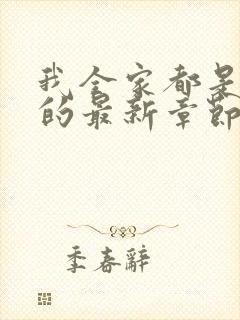 我全家都是
的最新章节
季春辞